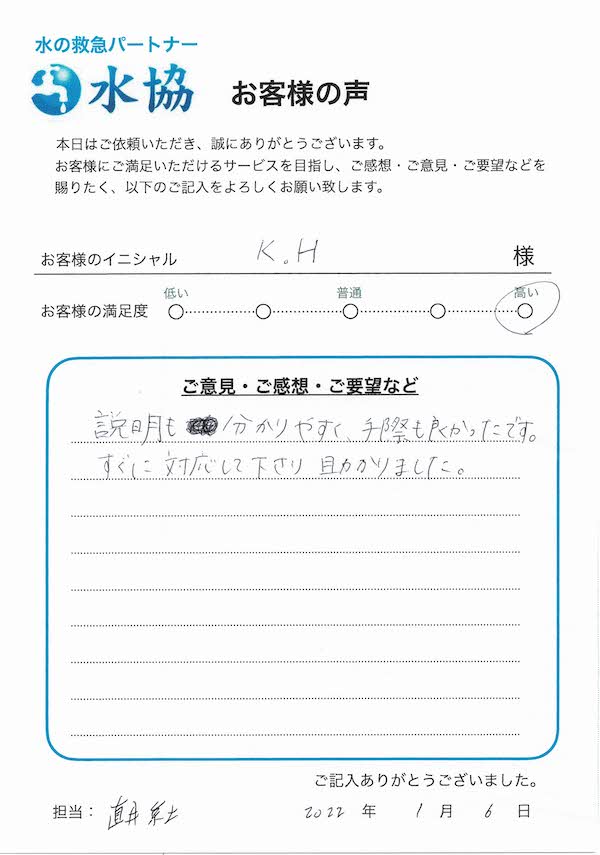 水の救急パートナー
水協 お客様の声
本日はご依頼いただき、誠にありがとうございます。
お客様にご満足いただけるサービスを目指し、ご感想・ご意見・ご要望などを
賜りたく、以下のご記入をよろしくお願い致します。
お客様のイニシャル K.H 様
低い 普通 高い
お客様の満足度
ご意見・ご感想・ご要望など
説明も分かりやすく、手際も良かったです。
すぐに対応して下さり助かりました。
ご記入ありがとうございました。
担当： 2022 年 1 月 6 日